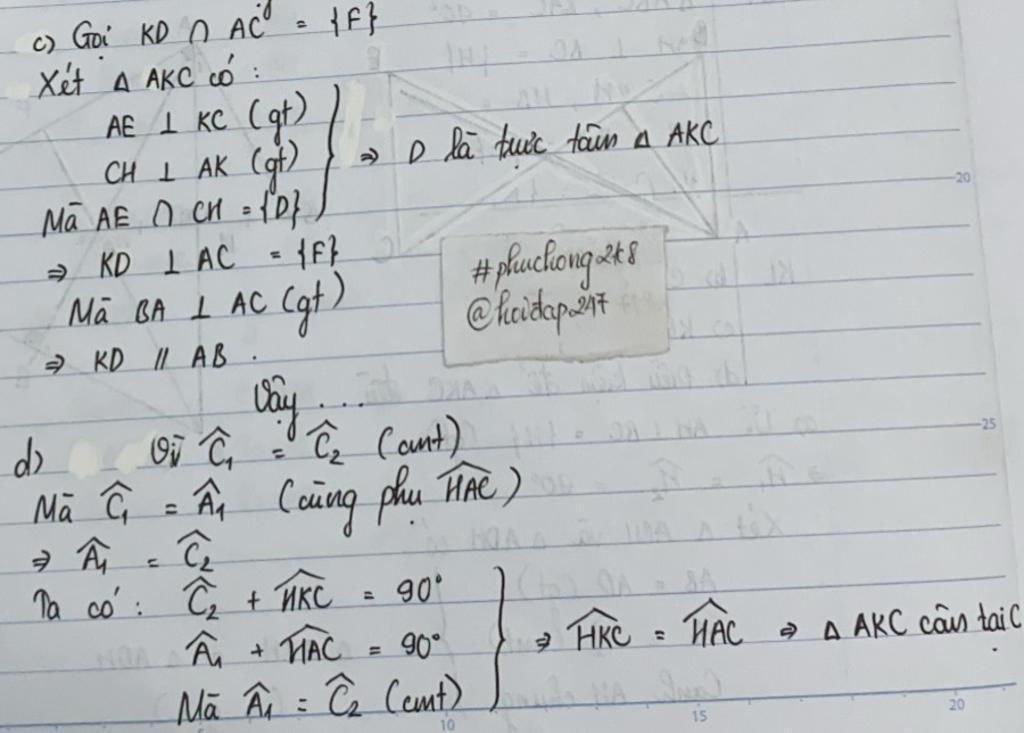 c) Gọi KD ∩ AC = {F}
Xét Δ AKC có :
AE ⊥ KC (gt)
CH ⊥ AK (gt)
Mà AE ∩ CH = {D}
⇒ D là trực tâm Δ AKC
⇒ KD ⊥ AC = {F}
Mà BA ⊥ AC (gt)
⇒ KD // AB .
Vậy ...
#phuchong2k8
@hoidap247
d) Vì Ĉ₁ = Ĉ₂ (cmt)
Mà Ĉ₁ = Â₁ (cùng phụ ĤAC)
⇒ Â₁ = Ĉ₂
Ta có : Ĉ₂ + ĤKC = 90°
Â₁ + ĤAC = 90°
Mà Â₁ = Ĉ₂ (cmt)
⇒ ĤKC = ĤAC ⇒ Δ AKC cân tại C .
20
25
10
15
20